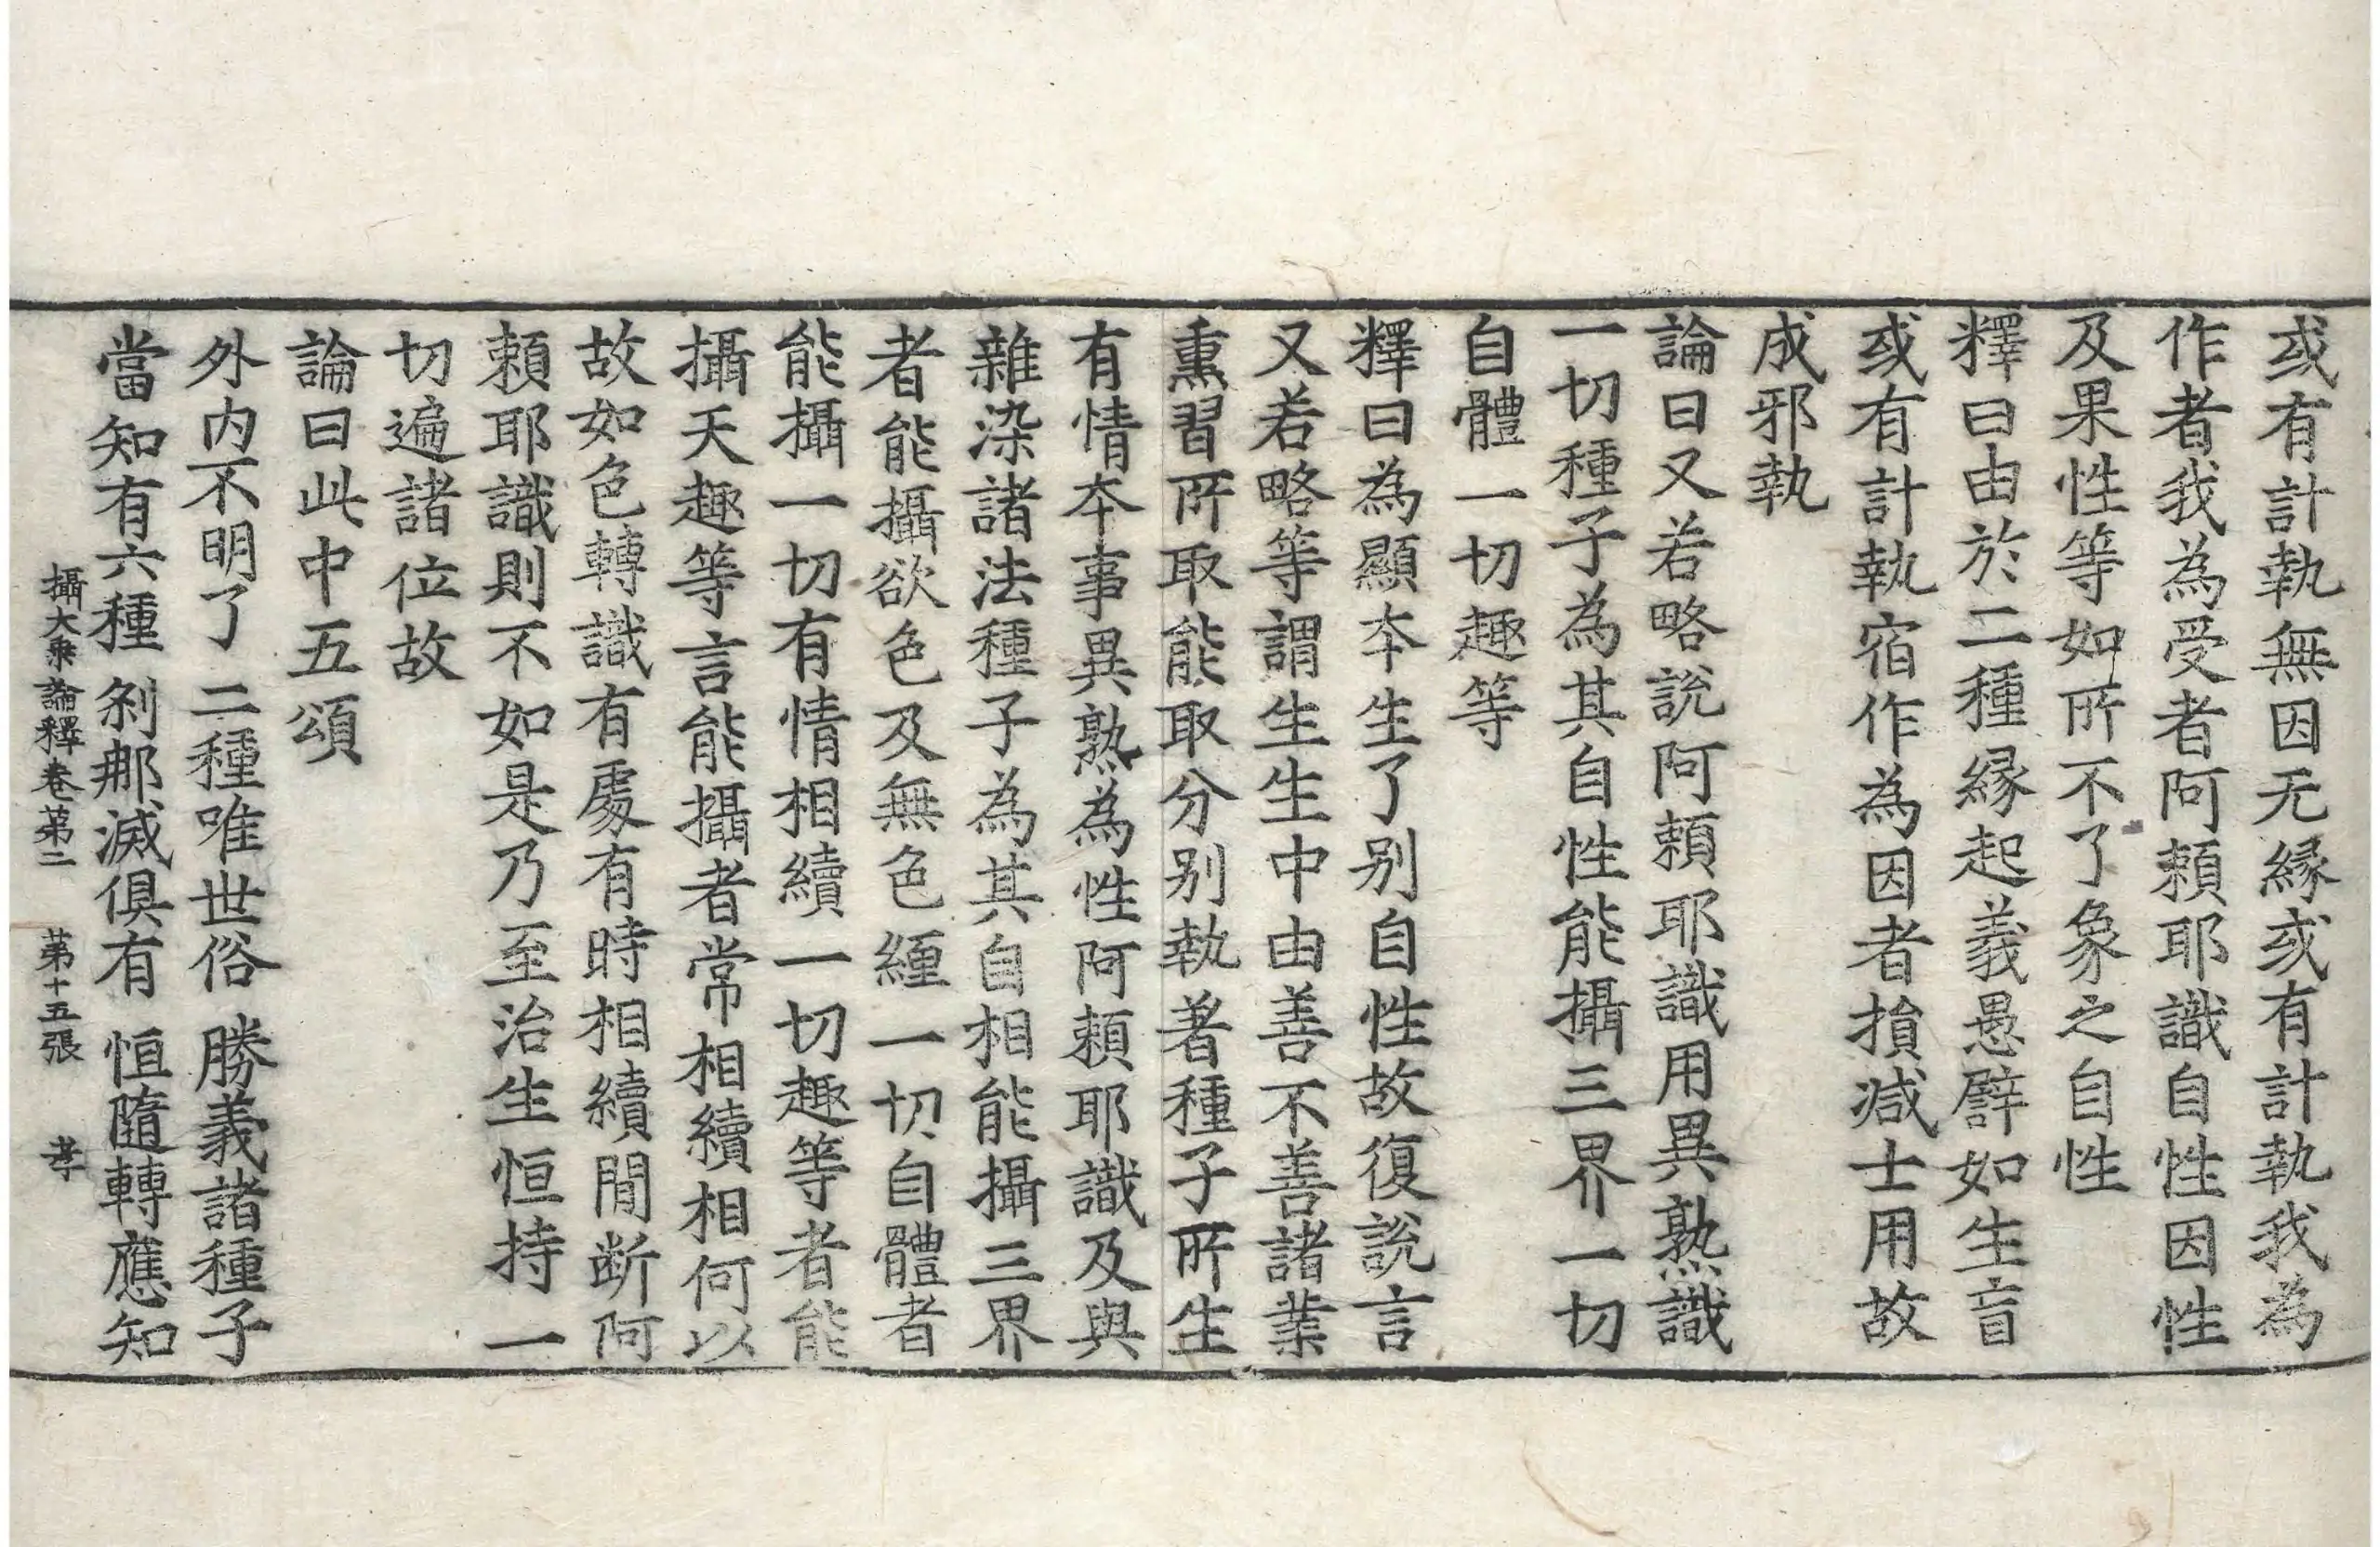 或有計執無因无縁或有計執我為
作者我為受者阿頼耶識自性因性
及果性等如所不了象之自性
釋曰由於二種縁起義愚譬如生盲
或有計執宿作為因者損減士用故
成邪執
論曰又若略說阿頼耶識用異熟識
一切種子為其自性能攝三界一切
自體一切趣等
釋曰為顯本生了别自性故復說言
又若略等謂生生中由善不善諸業
熏習所取能取分别執著種子所生
有情本事異熟為性阿頼耶識及與
雜染諸法種子為其自相能攝三界
者能攝欲色及無色纏一切自體者
能攝一切有情相續一切趣等者能
攝天趣等言能攝者常相續相何以
故如色轉識有處有時相續間断阿
頼耶識則不如是乃至治生恒持一
切遍諸位故
論曰此中五頌
外内不明了 二種唯世俗 勝義諸種子
當知有六種 刹那滅俱有 恒隨轉應知
攝大乗論釋卷第二 第十五張 孝